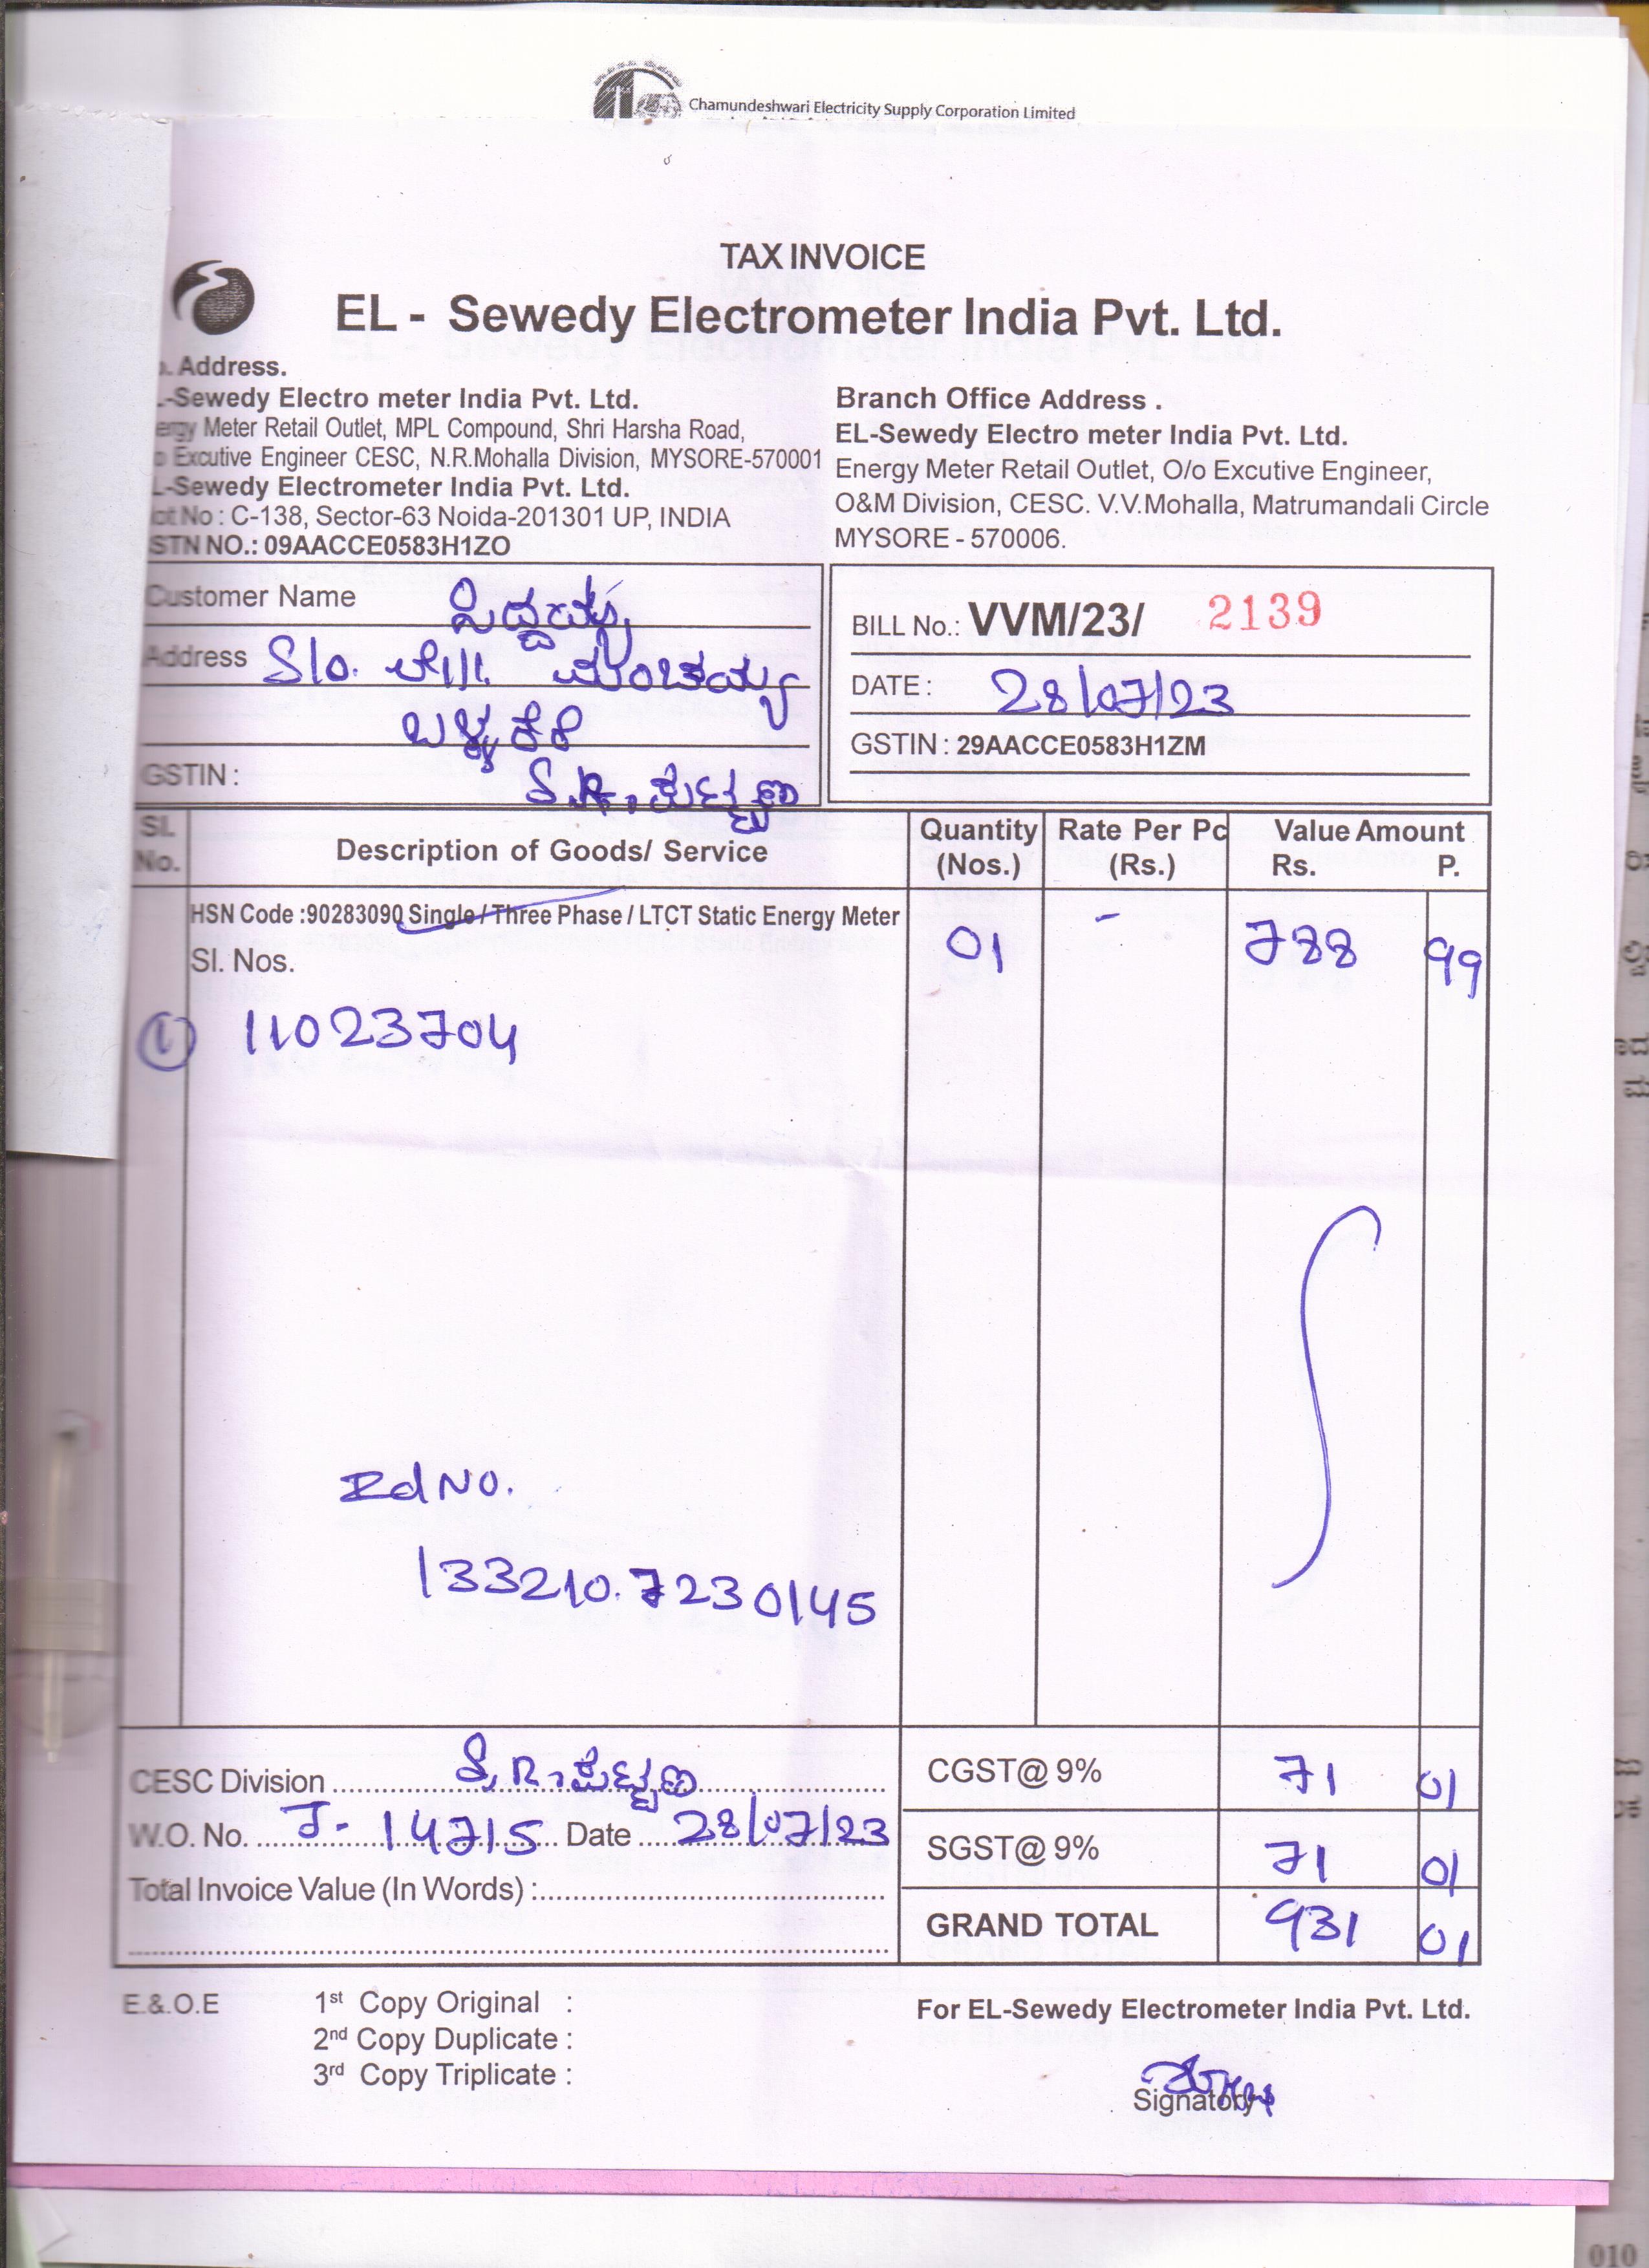 Chamundeshwari Electricity Supply Corporation Limited
TAX INVOICE
EL - Sewedy Electrometer India Pvt. Ltd.
. Address.
-Sewedy Electro meter India Pvt. Ltd.
ergy Meter Retail Outlet, MPL Compound, Shri Harsha Road,
o Excutive Engineer CESC, N.R.Mohalla Division, MYSORE-570001
-Sewedy Electrometer India Pvt. Ltd.
ot No : C-138, Sector-63 Noida-201301 UP, INDIA
STN NO.: 09AACCE0583H1ZO
Branch Office Address .
EL-Sewedy Electro meter India Pvt. Ltd.
Energy Meter Retail Outlet, O/o Excutive Engineer,
O&M Division, CESC. V.V.Mohalla, Matrumandali Circle
MYSORE - 570006.
Customer Name ಸಿದ್ದಯ್ಯ
Address S/o.
GSTIN :
BILL No.: VVM/23/ 2139
DATE : 28/07/23
GSTIN : 29AACCE0583H1ZM
Sl. No. Description of Goods/ Service Quantity (Nos.) Rate Per Pc (Rs.) Value Amount Rs. P.
HSN Code :90283090 Single / Three Phase / LTCT Static Energy Meter 01 - 788 99
Sl. Nos.
1 11023704
Id NO.
133210.7230145
CESC Division
W.O. No. J- 14715 Date 28/07/23
Total Invoice Value (In Words) :
CGST@ 9% 71 01
SGST@ 9% 71 01
GRAND TOTAL 931 01
E.&.O.E
1st Copy Original :
2nd Copy Duplicate :
3rd Copy Triplicate :
For EL-Sewedy Electrometer India Pvt. Ltd.
Signatory
010